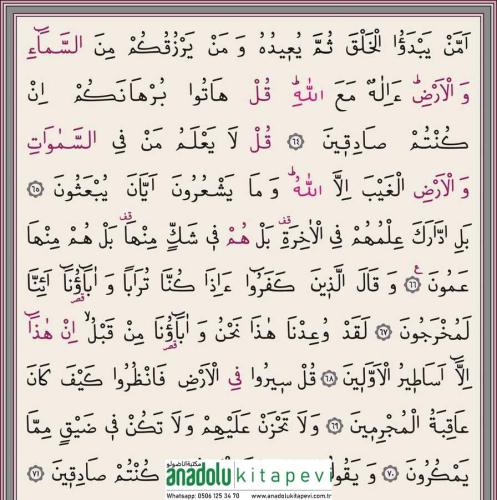 اَمَّنْ يَبْدَؤُا الْخَلْقَ ثُمَّ يُعٖيدُهُ وَ مَنْ يَرْزُقُكُمْ مِنَ السَّمَاءِ
وَ الْاَرْضِ ءَاِلٰهٌ مَعَ اللّٰهِ قُلْ هَاتُوا بُرْهَانَكُمْ اِنْ
كُنْتُمْ صَادِقٖينَ ﴿٦٤﴾ قُلْ لَا يَعْلَمُ مَنْ فِى السَّمٰوَاتِ
وَ الْاَرْضِ الْغَيْبَ اِلَّا اللّٰهُ وَ مَا يَشْعُرُونَ اَيَّانَ يُبْعَثُونَ ﴿٦٥﴾
بَلِ ادَّارَكَ عِلْمُهُمْ فِى الْاٰخِرَةِ قف بَلْ هُمْ فٖى شَكٍّ مِنْهَا قف بَلْ هُمْ مِنْهَا
عَمُونَ ع ﴿٦٦﴾ وَ قَالَ الَّذٖينَ كَفَرُوا ءَاِذَا كُنَّا تُرَابًا وَ اٰبَاؤُنَا اَئِنَّا
لَمُخْرَجُونَ ﴿٦٧﴾ لَقَدْ وُعِدْنَا هٰذَا نَحْنُ وَ اٰبَاؤُنَا مِنْ قَبْلُ لا اِنْ هٰذَا
اِلَّا اَسَاطٖيرُ الْاَوَّلٖينَ ﴿٦٨﴾ قُلْ سٖيرُوا فِى الْاَرْضِ فَانْظُرُوا كَيْفَ كَانَ
عَاقِبَةُ الْمُجْرِمٖينَ ﴿٦٩﴾ وَلَا تَحْزَنْ عَلَيْهِمْ وَلَا تَكُنْ فٖى ضَيْقٍ مِمَّا
يَمْكُرُونَ ﴿٧٠﴾ وَ يَقُو كُنْتُمْ صَادِقٖينَ ﴿٧١﴾
مكتبة اناضولو
anadolukitapevi
Whatsapp: 0506 125 34 70 www.anadolukitapevi.com.tr